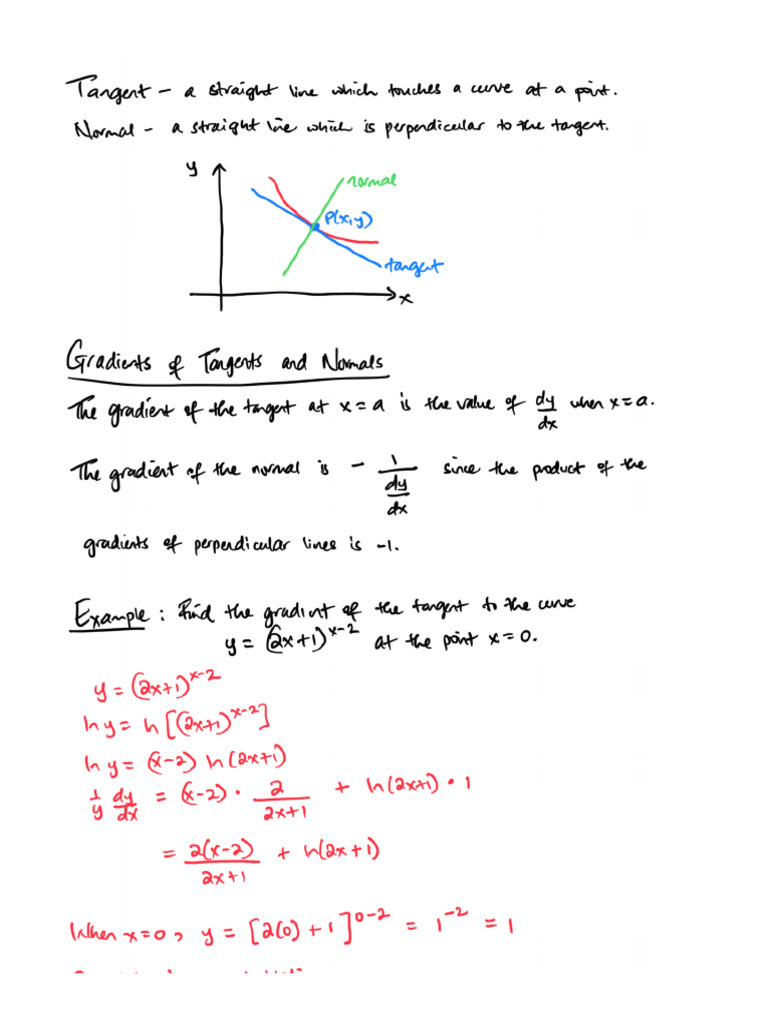 Tangent - a straight line which touches a curve at a point.
Normal - a straight line which is perpendicular to the tangent.
y
normal
P(x,y)
tangent
x
Gradients of Tangents and Normals
The gradient of the tangent at x = a is the value of dy/dx when x = a.
The gradient of the normal is - 1/(dy/dx) since the product of the
gradients of perpendicular lines is -1.
Example : Find the gradient of the tangent to the curve
y = (2x+1)^(x-2) at the point x = 0.
y = (2x+1)^(x-2)
ln y = ln [(2x+1)^(x-2)]
ln y = (x-2) ln (2x+1)
1/y dy/dx = (x-2) • 2/(2x+1) + ln (2x+1) • 1
= 2(x-2)/(2x+1) + ln (2x+1)
When x = 0, y = [2(0) + 1]^(0-2) = 1^(-2) = 1